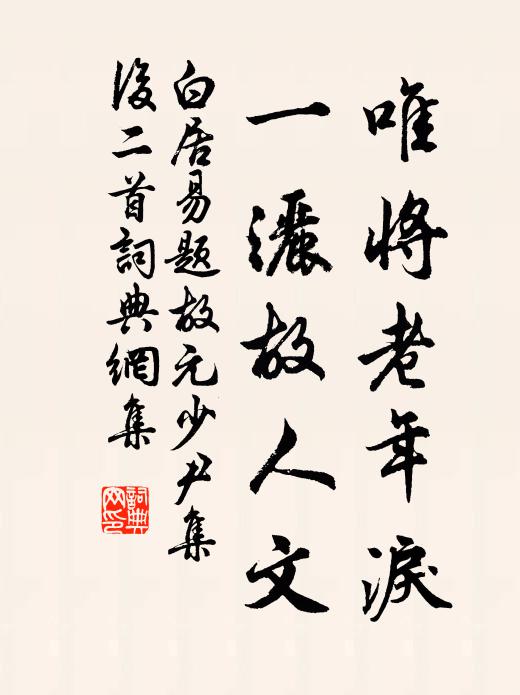 唯將老年淚
一灑故人文
白居易題故元少尹集
後二首詞典網集
詞典
网印